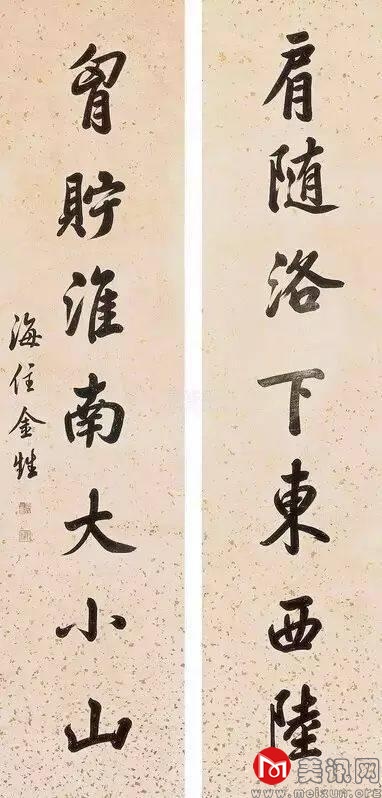 肩随洛下東西陸
胷貯淮南大小山
海住金甡
美讯网
www.meixun.org